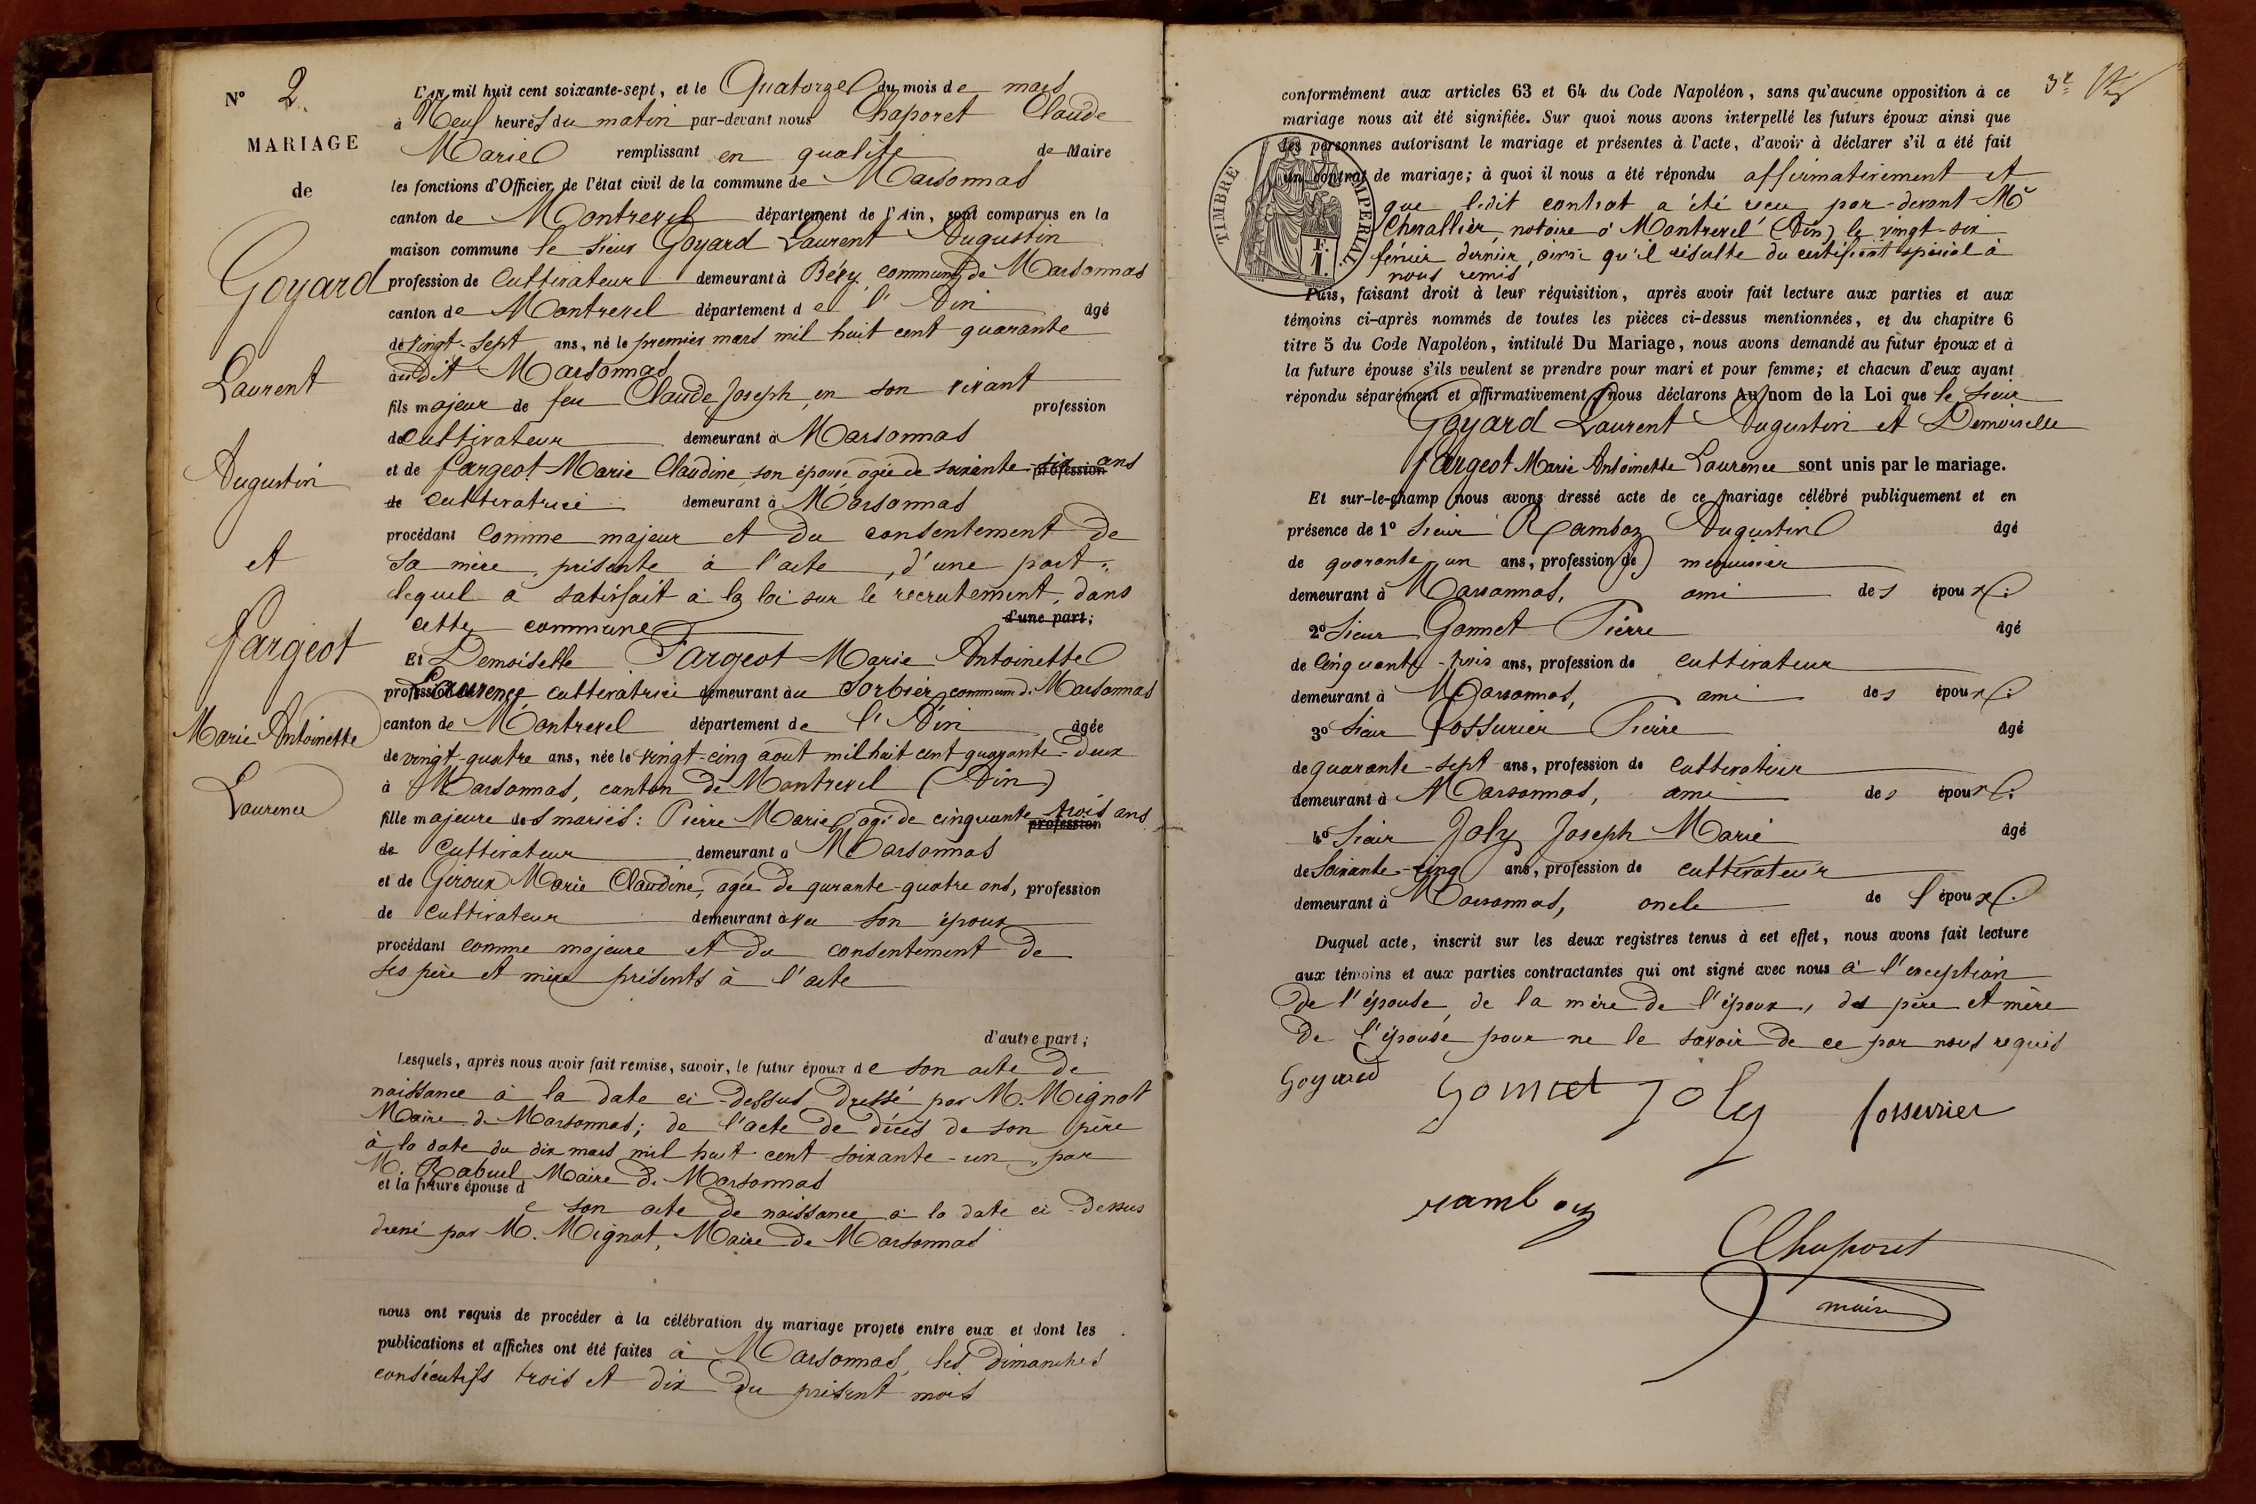 N° 2.
MARIAGE
de
Goyard
Laurent
Augustin
et
Fargeot
Marie Antoinette
Laurence
L'AN mil huit cent soixante-sept, et le Quatorze du mois de mars
à Neuf heures du matin par-devant nous Chaporet Claude
Marie remplissant en qualité de Maire
les fonctions d'Officier de l'état civil de la commune de Marsonnas
canton de Montrevel département de l'Ain, sont comparus en la
maison commune le sieur Goyard Laurent Augustin
profession de Cultivateur demeurant à Béey, commune de Marsonnas
canton de Montrevel département de l'Ain âgé
de vingt-sept ans, né le premier mars mil huit cent quarante
audit Marsonnas
fils majeur de feu Claude Joseph, en son vivant profession
de cultivateur demeurant à Marsonnas
et de Fargeot Marie Claudine son épouse agée de soixante-six ans profession
de cultivatrice demeurant à Marsonnas
procédant comme majeur et du consentement de
sa mère, présente à l'acte, d'une part.
lequel a satisfait à la loi sur le recrutement, dans
cette commune d'une part;
Et Demoiselle Fargeot Marie Antoinette
profession de Laurence cultivatrice demeurant au Sorbier, commune de Marsonnas
canton de Montrevel département de l'Ain agée
de vingt-quatre ans, née le vingt-cinq aout mil huit cent quarante-deux
à Marsonnas, canton de Montrevel (Ain)
fille majeure des mariés: Pierre Marie agé de cinquante trois ans profession
de Cultivateur demeurant à Marsonnas
et de Giroux Marie Claudine, agée de qurante-quatre ans, profession
de cultivateur demeurant avec son époux
procédant comme majeure et du consentement de
ses père et mère présents à l'acte
d'autre part;
Lesquels, après nous avoir fait remise, savoir, le futur époux de son acte de
naissance à la date ci-dessus dressé par M. Mignot
Maire de Marsonnas; de l'acte de décès de son père
à la date du dix mars mil huit cent soixante-un, par
M. Rabuel Maire de Marsonnas
et la future épouse d
e son acte de naissance à la date ci-dessus
dressé par M. Mignot, Maire de Marsonnas
nous ont requis de procéder à la célébration du mariage projeté entre eux et dont les
publications et affiches ont été faites à Marsonnas, les dimanches
consécutifs trois et dix du présent mois
3e
conformément aux articles 63 et 64 du Code Napoléon, sans qu'aucune opposition à ce
mariage nous ait été signifiée. Sur quoi nous avons interpellé les futurs époux ainsi que
les personnes autorisant le mariage et présentes à l'acte, d'avoir à déclarer s'il a été fait
un contrat de mariage; à quoi il nous a été répondu affirmativement et
que ledit contrat a été recu par-devant Me
Chevallier, notaire à Montrevel (Ain) le vingt-six
février dernier, ainsi qu'il résulte du certificat spécial à
nous remis
TIMBRE IMPERIAL
F.
1.
Puis, faisant droit à leur réquisition, après avoir fait lecture aux parties et aux
témoins ci-après nommés de toutes les pièces ci-dessus mentionnées, et du chapitre 6
titre 5 du Code Napoléon, intitulé Du Mariage, nous avons demandé au futur époux et à
la future épouse s'ils veulent se prendre pour mari et pour femme; et chacun d'eux ayant
répondu séparément et affirmativement, nous déclarons Au nom de la Loi que le sieur
Goyard Laurent Augustin et Demoiselle
Fargeot Marie Antoinette Laurence sont unis par le mariage.
Et sur-le-champ nous avons dressé acte de ce mariage célébré publiquement et en
présence de 1° Sieur Ramboz Augustin âgé
de quarante un ans, profession de menuisier
demeurant à Marsonnas, ami des époux.
2° Sieur Gonnet Pierre âgé
de Cinquante-trois ans, profession de cultivateur
demeurant à Marsonnas, ami des époux.
3° Sieur Fossurier Pierre âgé
de quarante-sept ans, profession de cultivateur
demeurant à Marsonnas, ami des époux.
4° Sieur Joly Joseph Marie âgé
de Soixante-cinq ans, profession de cultivateur
demeurant à Marsonnas, oncle de l'époux.
Duquel acte, inscrit sur les deux registres tenus à cet effet, nous avons fait lecture
aux témoins et aux parties contractantes qui ont signé avec nous à l'exception
de l'épouse, de la mère de l'époux, des père et mère
de l'épouse pour ne le savoir de ce par nous requis
Goyard Gonnet Joly fossurier
ramboz
Chaporet
maire